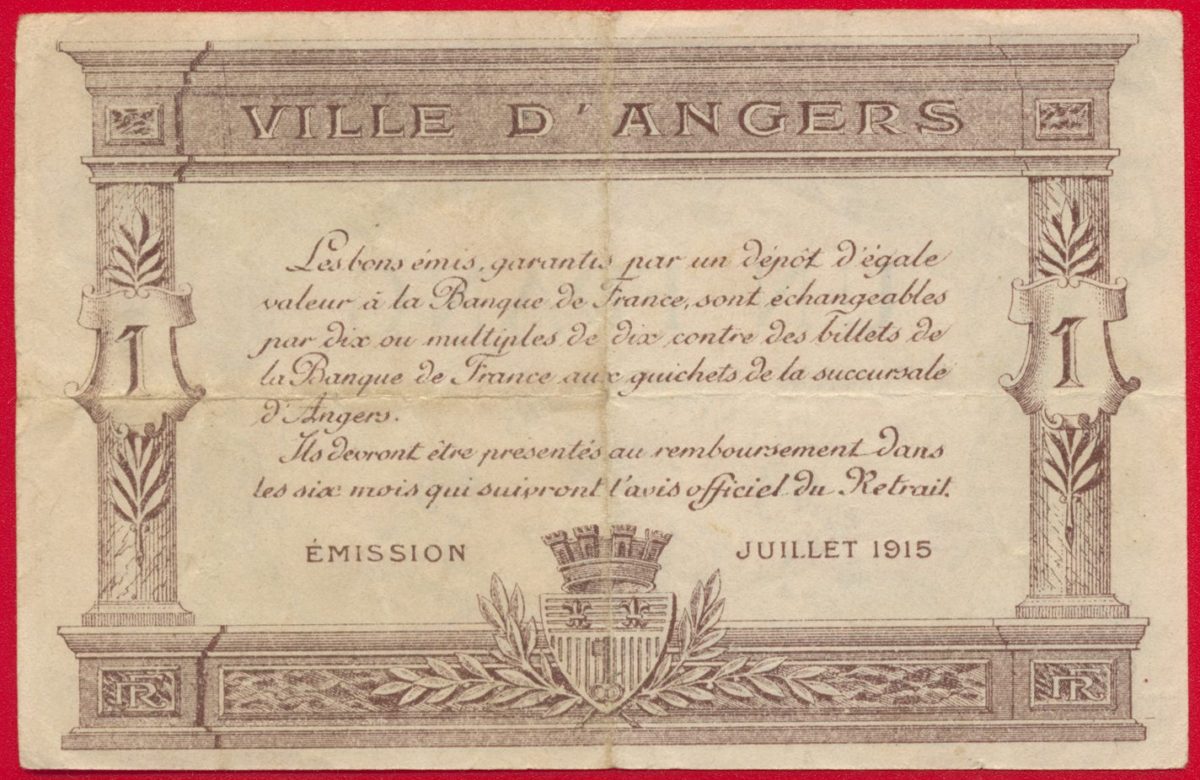 VILLE D'ANGERS
Les bons émis, garantis par un dépôt d'égale
valeur à la Banque de France, sont échangeables
par dix ou multiples de dix contre des billets de
la Banque de France aux guichets de la succursale
d'Angers.
Ils devront être présentés au remboursement dans
les six mois qui suivront l'avis officiel du Retrait.
1
1
ÉMISSION JUILLET 1915
RF
RF